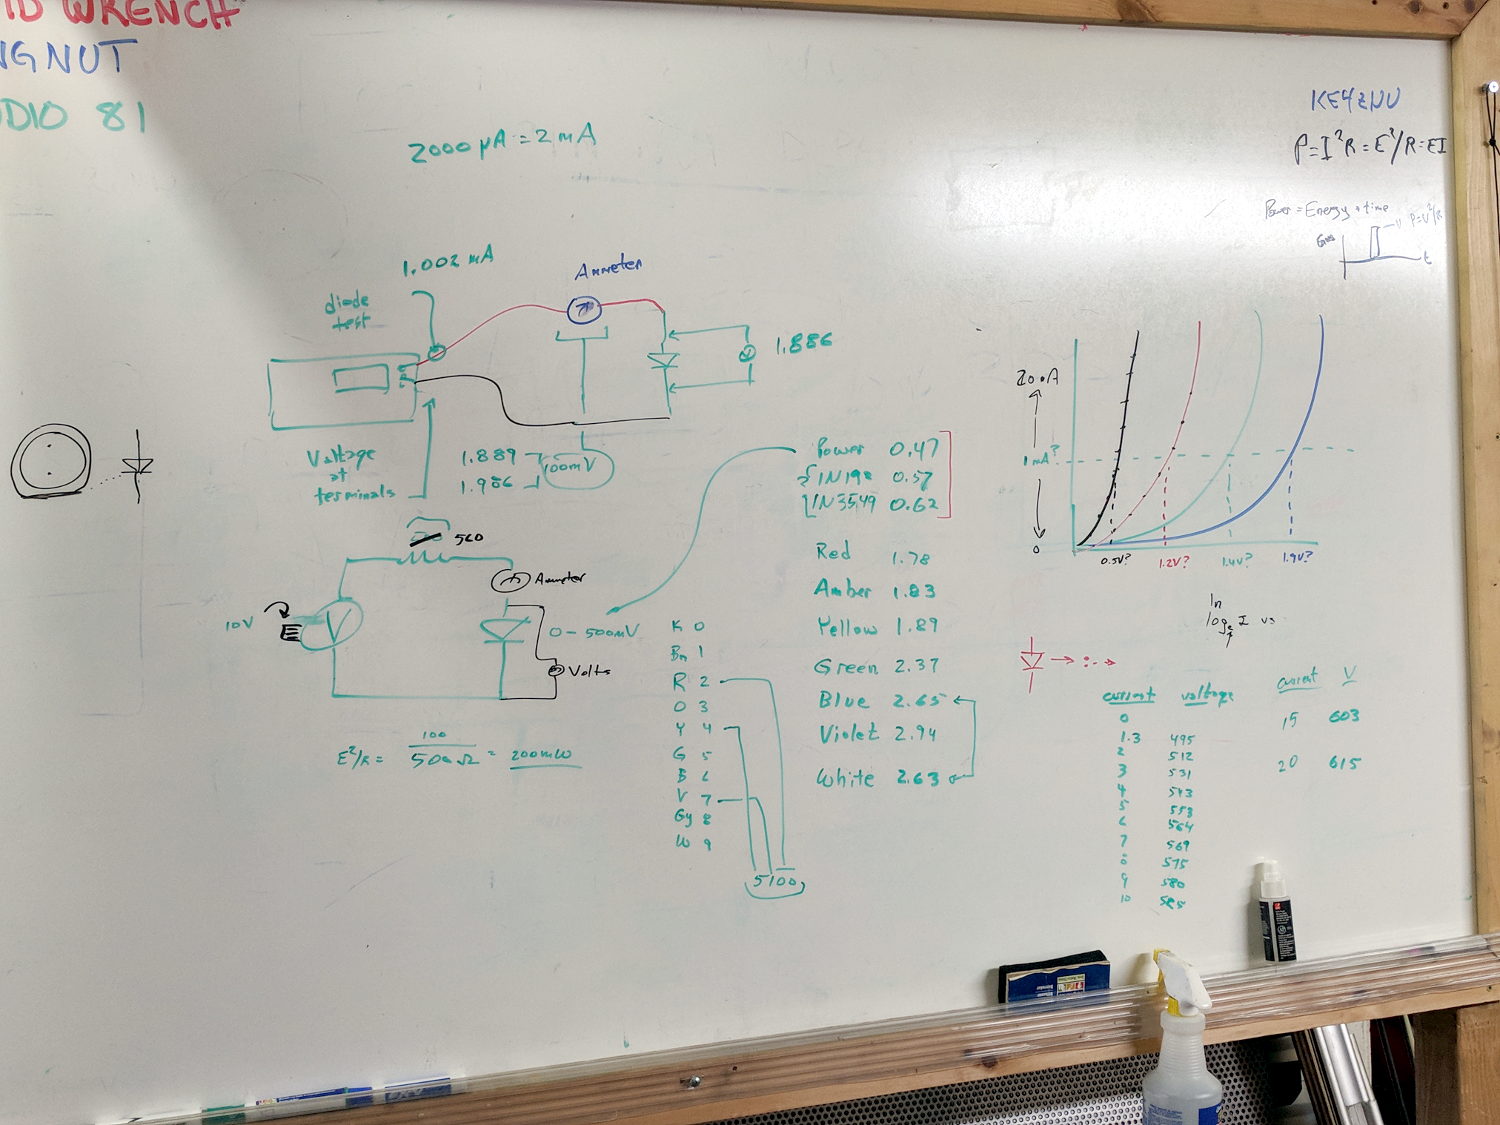 WRENCH
NGNUT
DIO 81
2000 µA = 2 mA
KE4ZNU
P=I²R = E²/R = EI
Power = Energy * time
P=V²/R
t
1.002 mA
Ammeter
diode
test
1.886
Voltage
at
terminals
1.889
1.986
100mV
Power 0.47
1N198 0.57
1N3549 0.62
Red 1.78
Amber 1.83
Yellow 1.89
Green 2.37
Blue 2.65
Violet 2.94
White 2.63
560
Ammeter
10V
V
0-500mV
Volts
E²/R = 100 / 500 Ω = 200mW
K 0
Bn 1
R 2
O 3
Y 4
G 5
B 6
V 7
Gy 8
W 9
5100
1mA?
0
0.5V? 1.2V? 1.4V? 1.9V?
ln
log e I vs
current voltage
0
1.3 495
2 512
3 531
4 543
5 553
6 564
7 569
8 575
9 580
10 585
current V
15 603
20 615